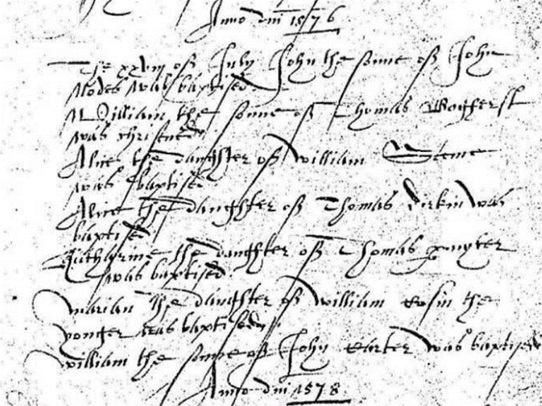 Anno dni 1576
The xxvij of July John the sonne of John
was baptised
William the sonne of Thomas
was christened
Alice the daughter of William
was baptised
Alice the daughter of Thomas Dirkin was
baptised
Katheryne the daughter of Thomas
was baptised
Marian the daughter of William the
yonger was baptised
William the sonne of John Carter was baptised
Anno dni 1578